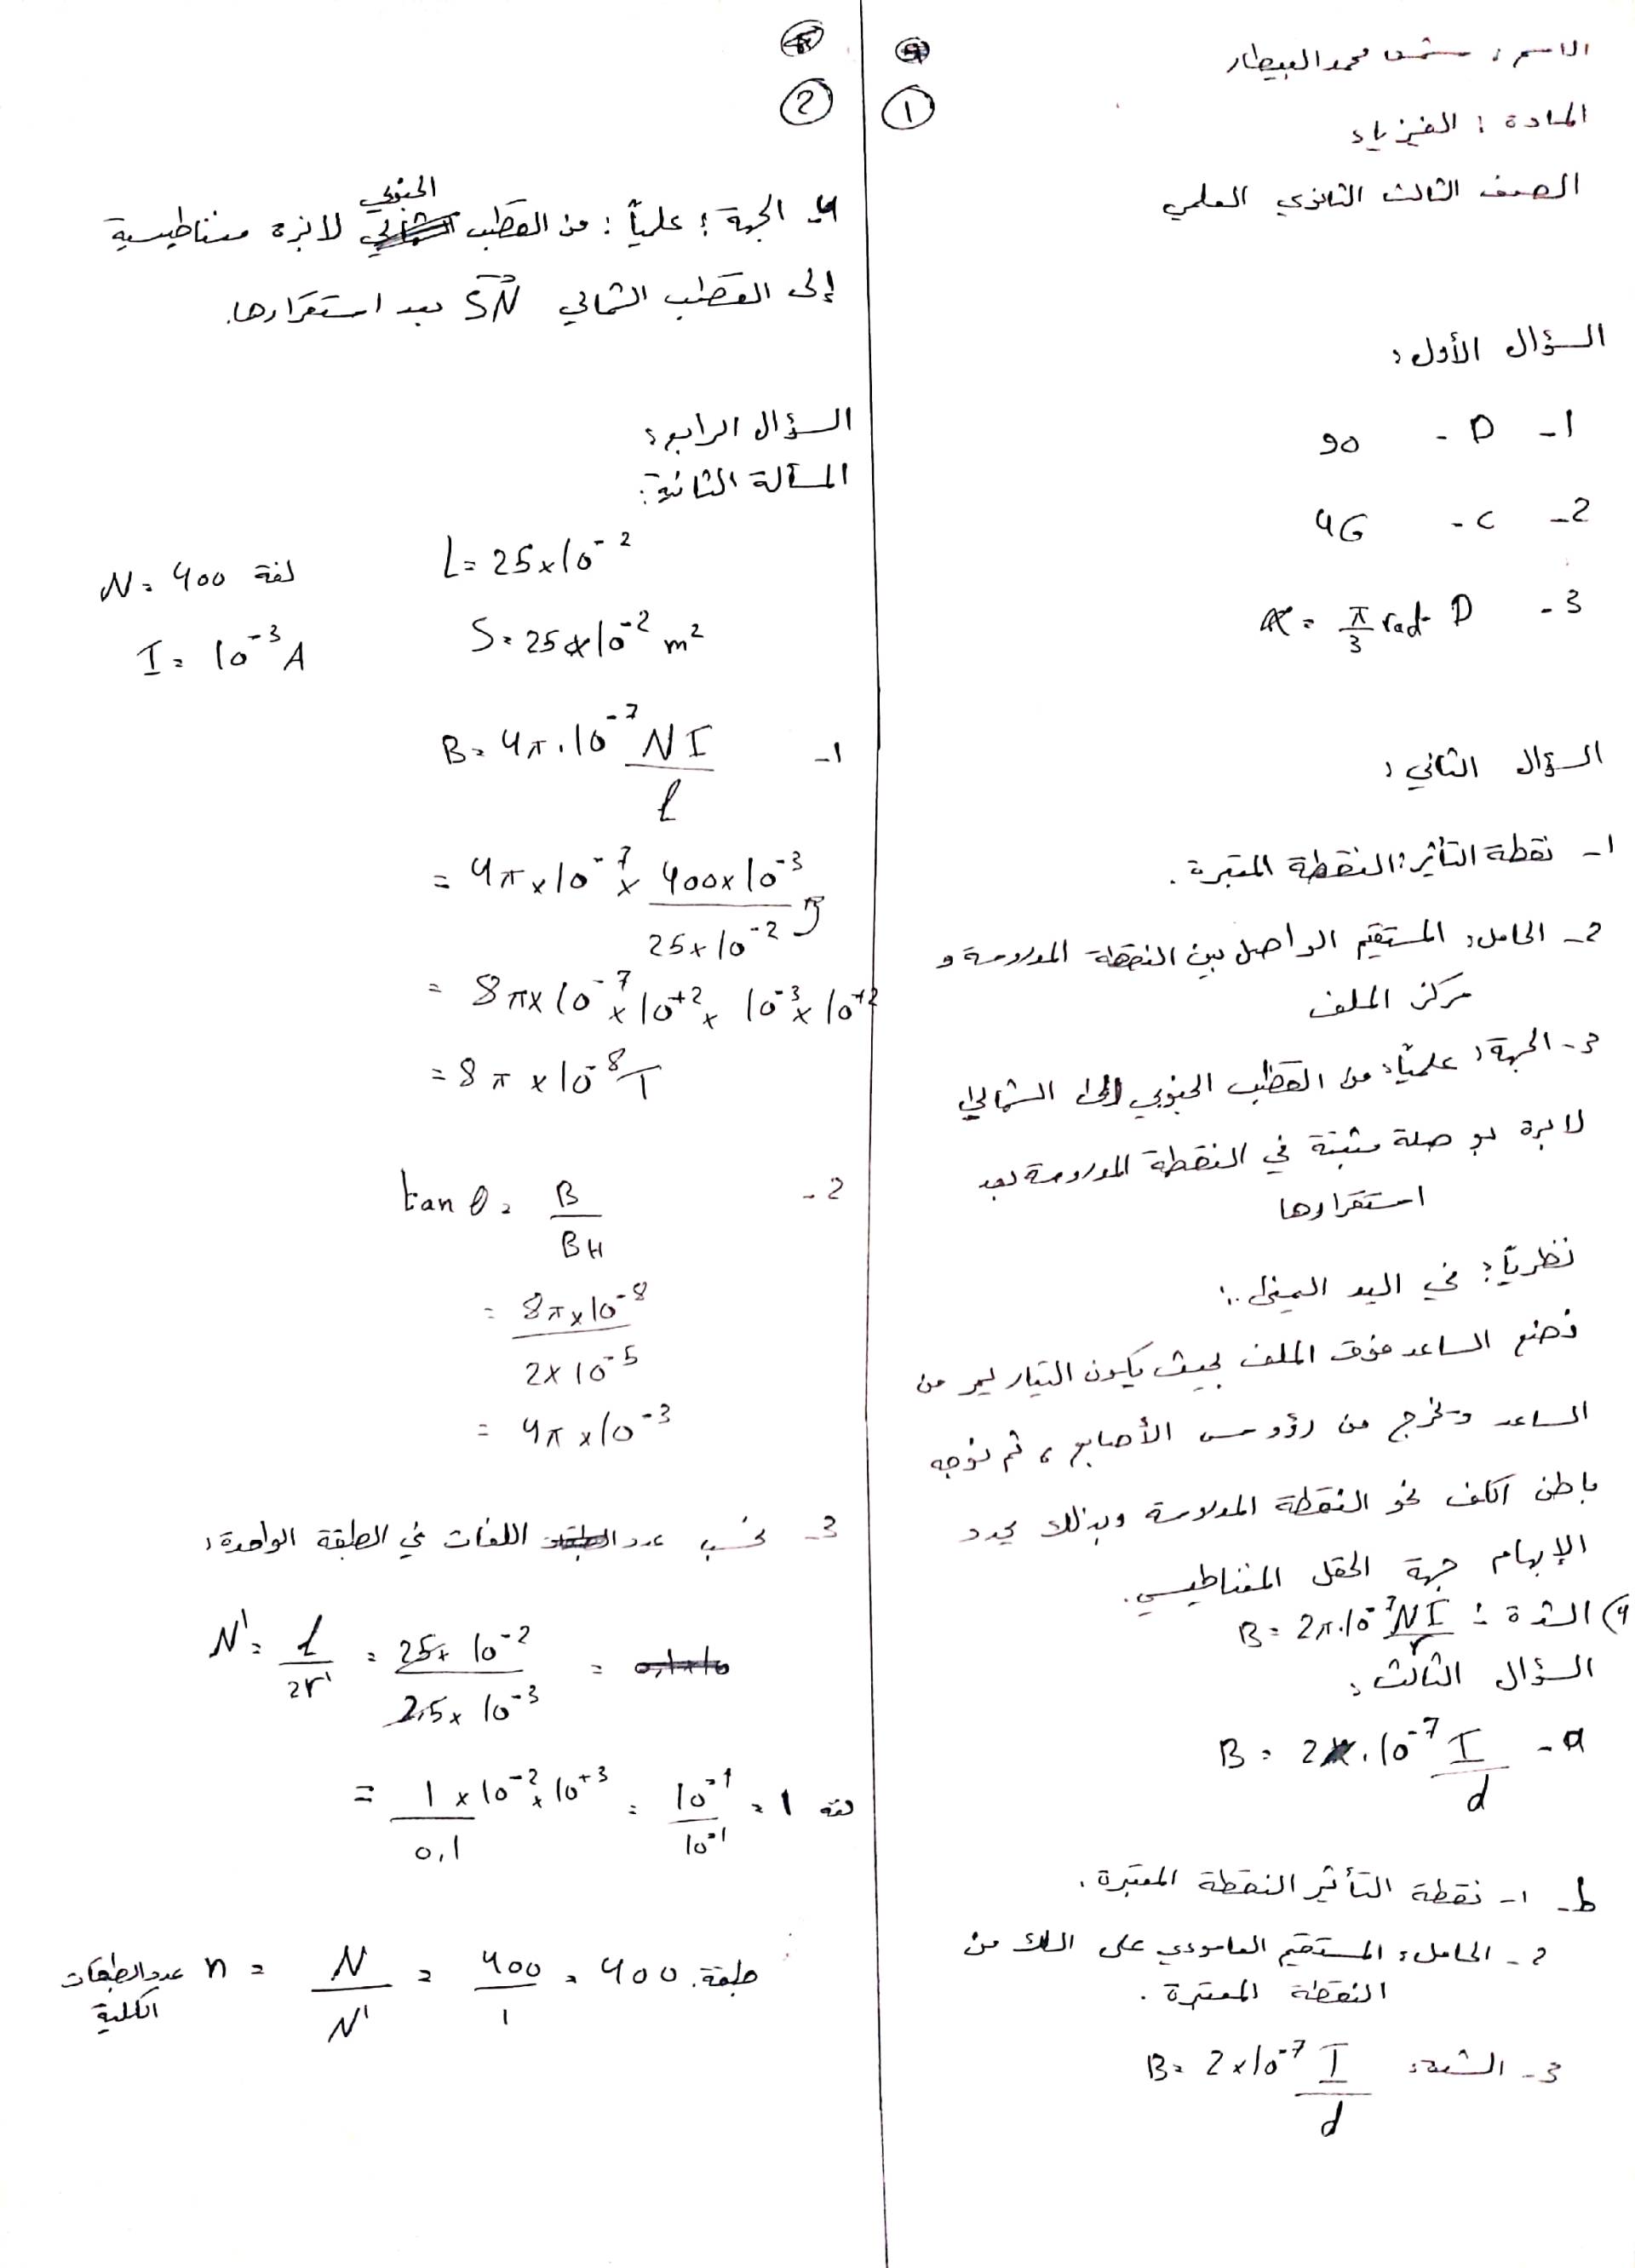 1
الاسم : شمس محمد البيطار
المادة : الفيزياء
الصف الثالث الثانوي العلمي
السؤال الأول :
1- D - 90
2- C - 4G
3- D α = π/3 rad
السؤال الثاني :
1- نقطة التأثير : النقطة المعتبرة .
2- الحامل : المستقيم الواصل بين النقطة المدروسة و
مركز الملف
3- الجهة : علمياً : من القطب الجنوبي إلى الشمالي
لابرة بوصلة مثبتة في النقطة المدروسة بعد
استقرارها
نظرياً : في اليد اليمنى :
نضع الساعد فوق الملف بحيث يكون التيار يمر من
الساعد ويخرج من رؤوس الأصابع ، ثم نوجه
باطن الكف نحو النقطة المدروسة وبذلك يحدد
الإبهام جهة الحقل المغناطيسي .
4) الشدة : B = 2π.10^-7 NI/r
السؤال الثالث :
a- B = 2.10^-7 I/d
b- 1- نقطة التأثير النقطة المعتبرة .
2- الحامل : المستقيم العامودي على السلك من
النقطة المعتبرة .
3- الشدة : B = 2x10^-7 I/d
2
4- الجهة : علمياً : من القطب الجنوبي لابرة مغناطيسية
إلى القطب الشمالي SN بعد استقرارها .
السؤال الرابع :
المسألة الثانية :
L = 25x10^-2 N = 400 لفة
S = 25x10^-2 m² I = 10^-3 A
1- B = 4π.10^-7 NI/l
= 4πx10^-7 x 400x10^-3/25x10^-2
= 8πx10^-7 x 10^+2 x 10^-3 x 10^+2
= 8πx10^-8 T
2- tan θ = B/BH
= 8πx10^-8/2x10^-5
= 4πx10^-3
3- نحسب عدد اللفات في الطبقة الواحدة :
N' = l/2r' = 25x10^-2/2,5x10^-3 =
= 1x10^-2x10^+3/0,1 = 10^-1/10^-1 = 1 لفة
عدد الطبقات الكلية n = N/N' = 400/1 = 400 طبقة .